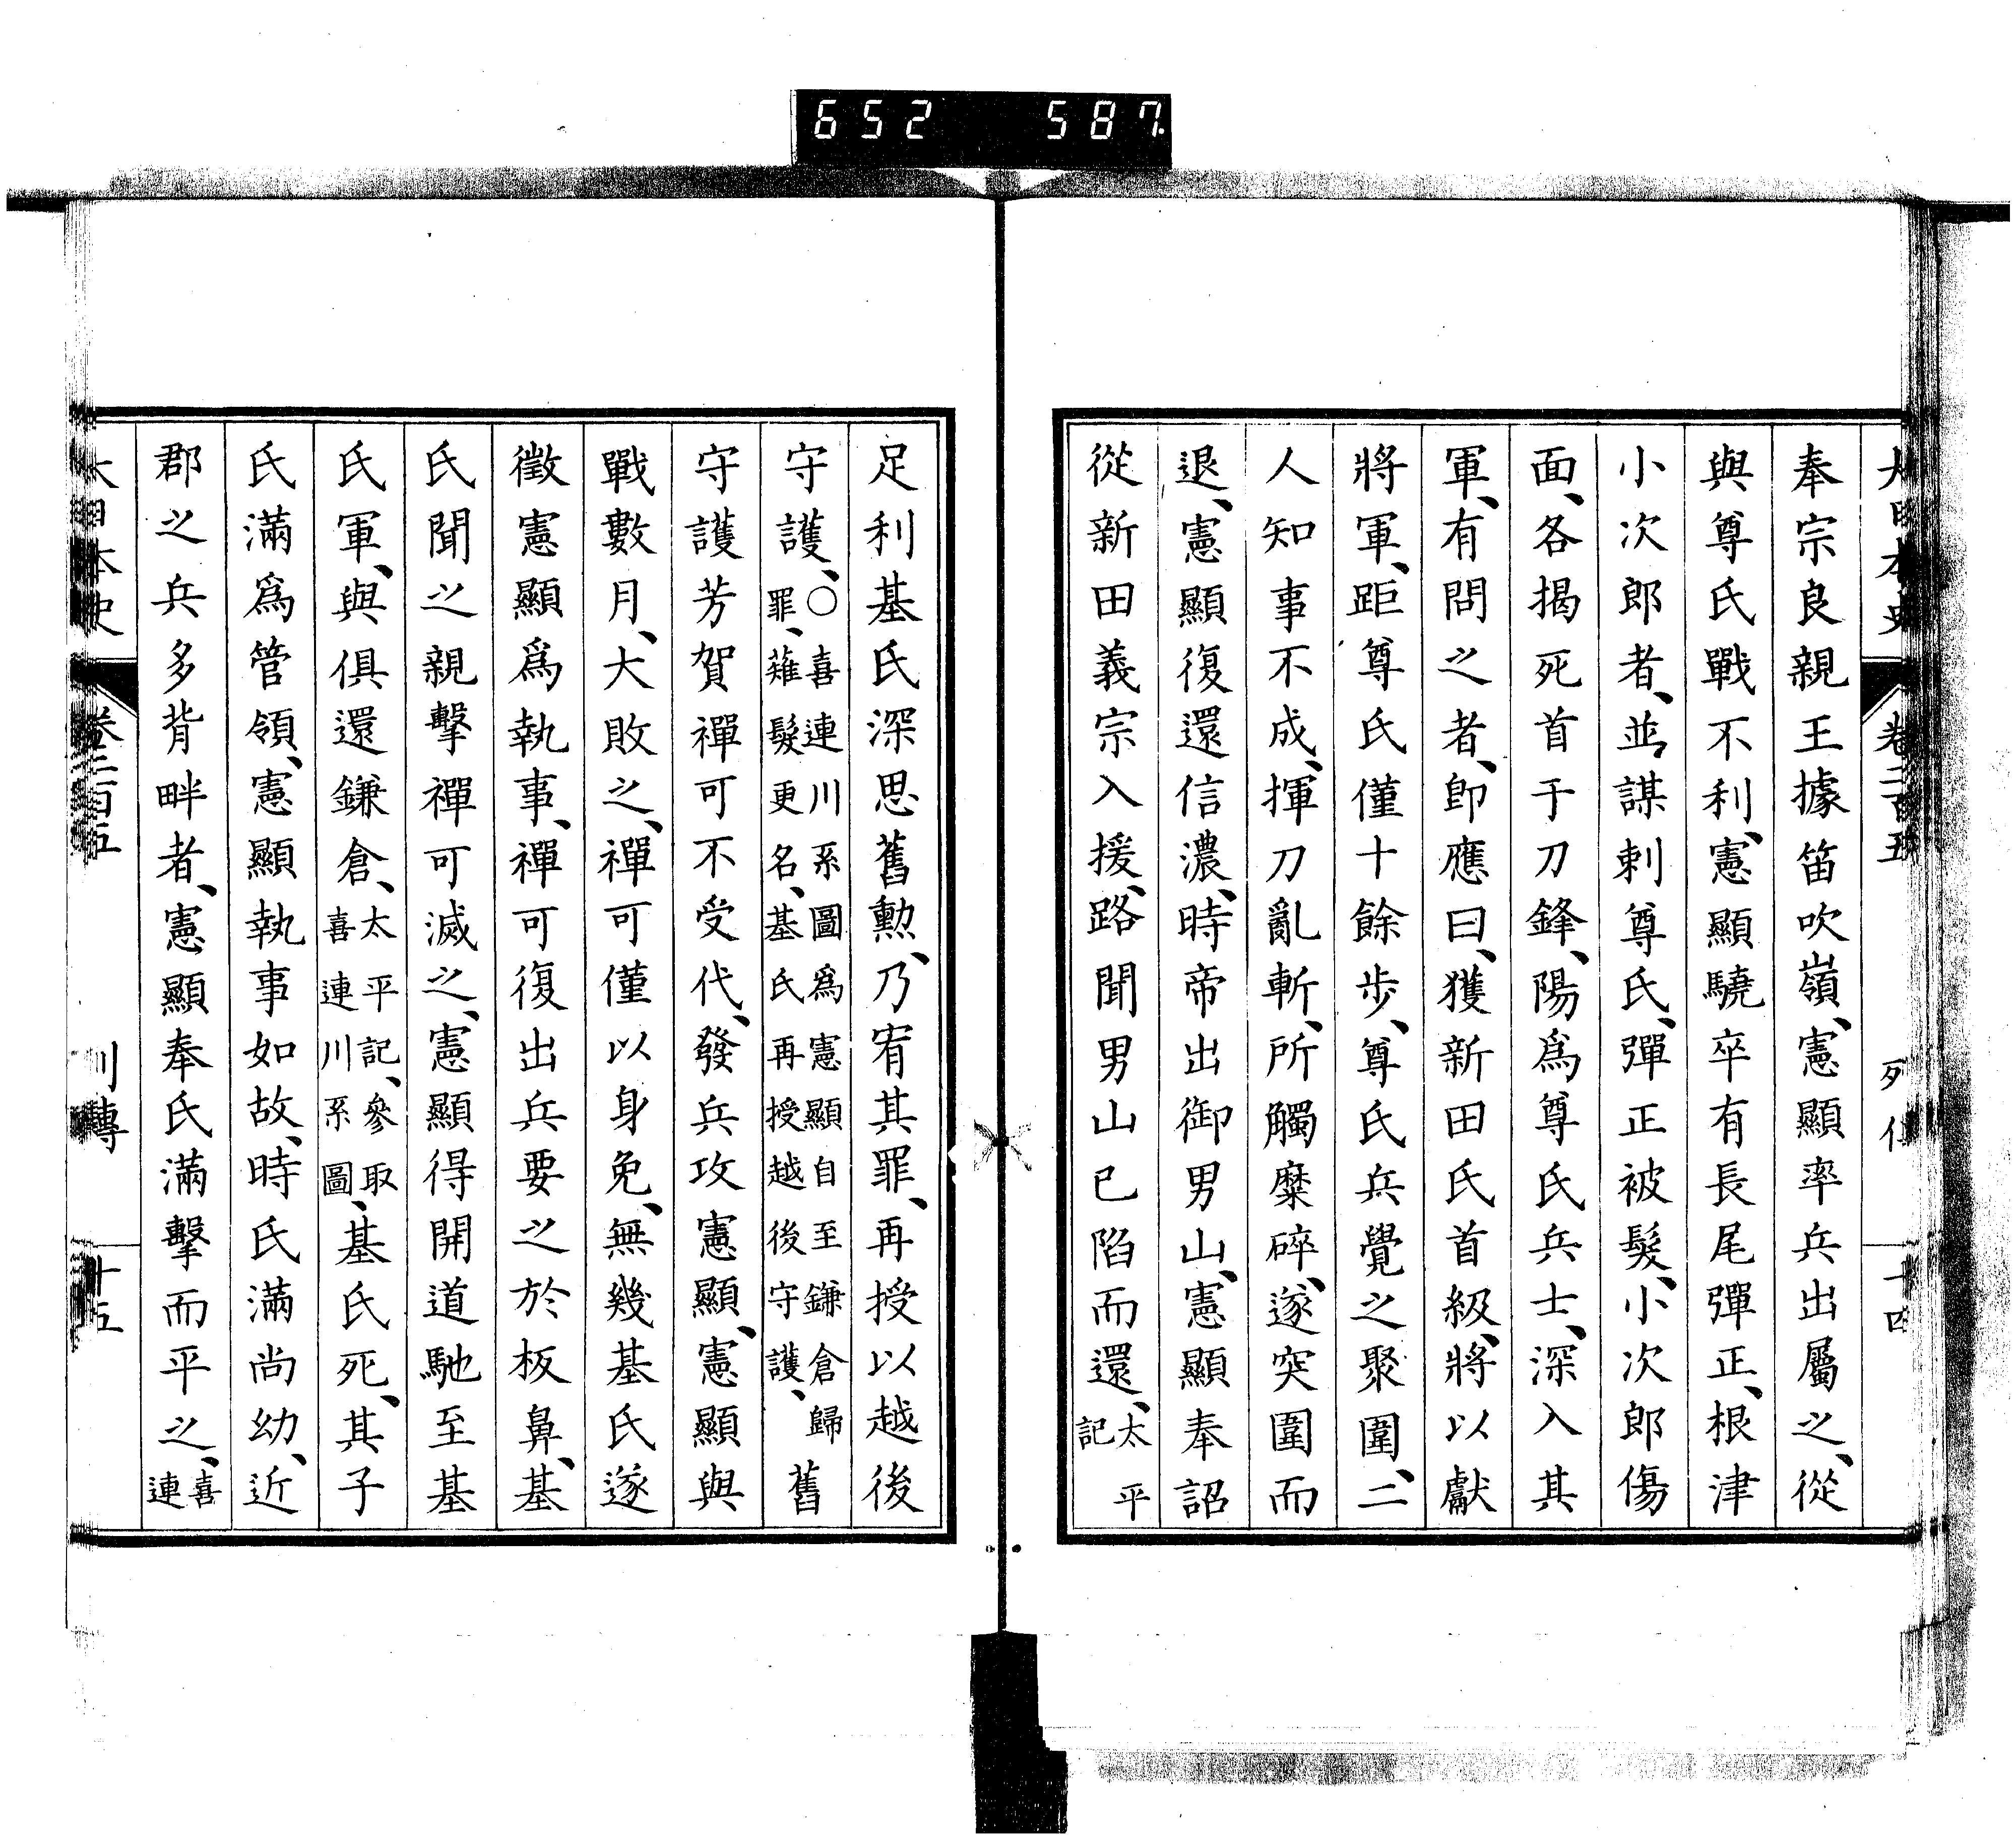 652 587.
大日本史 卷二百五 列傳 十四
奉宗良親王據笛吹嶺、憲顯率兵出屬之、從
與尊氏戰不利、憲顯驍卒有長尾彈正、根津
小次郎者、並謀刺尊氏、彈正被髮、小次郎傷
面、各揭死首于刀鋒、陽爲尊氏兵士、深入其
軍、有問之者、卽應曰、獲新田氏首級、將以獻
將軍、距尊氏僅十餘步、尊氏兵覺之聚圍、二
人知事不成、揮刀亂斬、所觸糜碎、遂突圍而
退、憲顯復還信濃、時帝出御男山、憲顯奉詔
從新田義宗入援、路聞男山已陷而還、太平記
足利基氏深思舊勳、乃宥其罪、再授以越後
守護、○喜連川系圖爲憲顯自至鎌倉歸罪、薙髮更名、基氏再授越後守護、舊
守護芳賀禪可不受代、發兵攻憲顯、憲顯與
戰數月、大敗之、禪可僅以身免、無幾基氏遂
徵憲顯爲執事、禪可復出兵要之於板鼻、基
氏聞之親擊禪可滅之、憲顯得開道馳至基
氏軍、與俱還鎌倉、太平記、參取喜連川系圖、基氏死、其子
氏滿爲管領、憲顯執事如故、時氏滿尚幼、近
郡之兵多背畔者、憲顯奉氏滿擊而平之、喜連
大日本史 卷二百五 列傳 十五